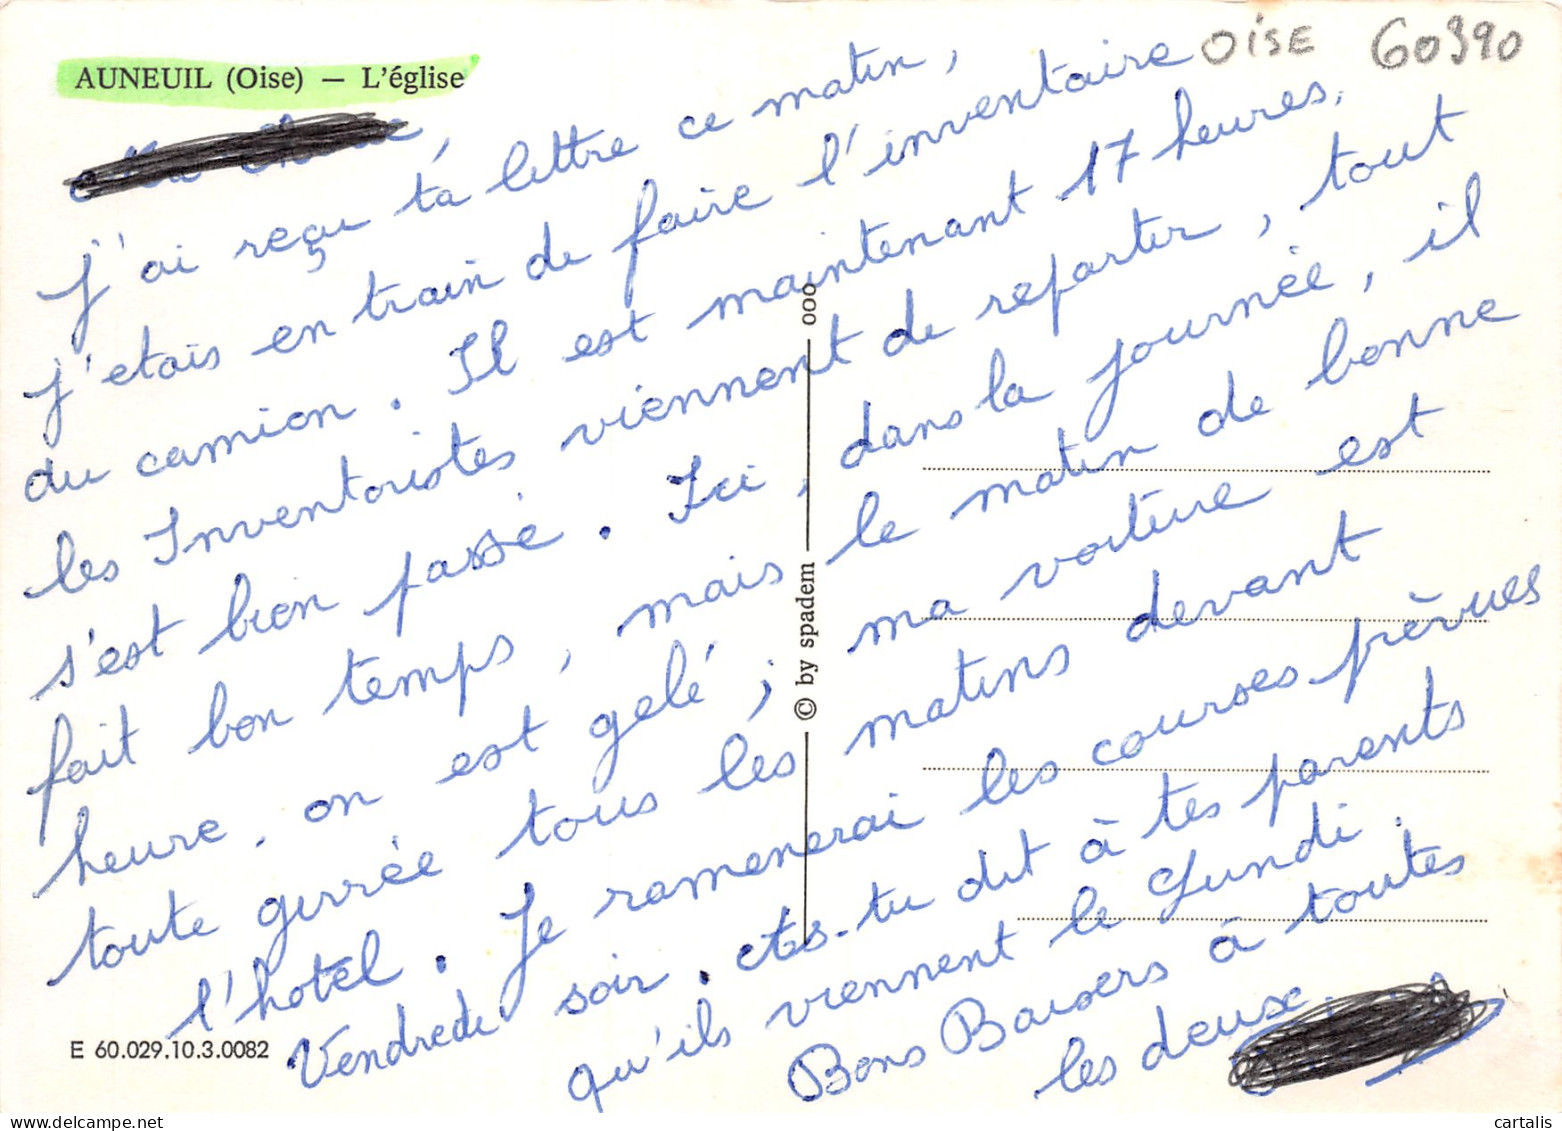 OISE 60390
AUNEUIL (Oise) — L'église
J'ai reçu ta lettre ce matin,
j'etais en train de faire l'inventaire
du camion. Il est maintenant 17 heures,
les Inventoristes viennent de repartir, tout
s'est bien passé. Ici, dans la journée, il
fait bon temps, mais le matin de bonne
heure, on est gelé; ma voiture est
toute givrée tous les matins devant
l'hotel. Je ramenerai les courses prèvues
Vendredi soir. As-tu dit à tes parents
qu'ils viennent le Lundi.
Bons Baisers à toutes
les deux.
© by spadem
ooo
E 60.029.10.3.0082
cartalis